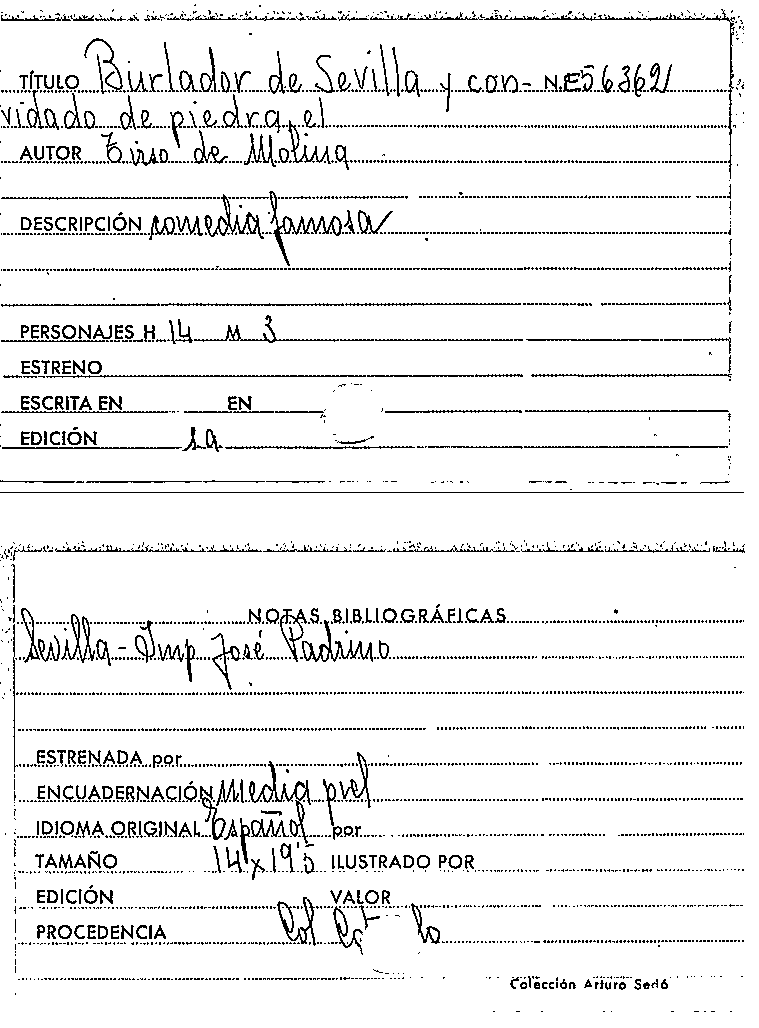 TÍTULO Burlador de Sevilla y con- N.E56362
vidado de piedra, el
AUTOR Tirso de Molina
DESCRIPCIÓN comedia famosa
PERSONAJES H 14 M 3
ESTRENO
ESCRITA EN EN
EDICIÓN s.a
NOTAS BIBLIOGRÁFICAS
Sevilla - Imp José Padrino
ESTRENADA por
ENCUADERNACIÓN media piel
IDIOMA ORIGINAL Español por
TAMAÑO 14x19'5 ILUSTRADO POR
EDICIÓN VALOR
PROCEDENCIA Col
Colección Arturo Sedó